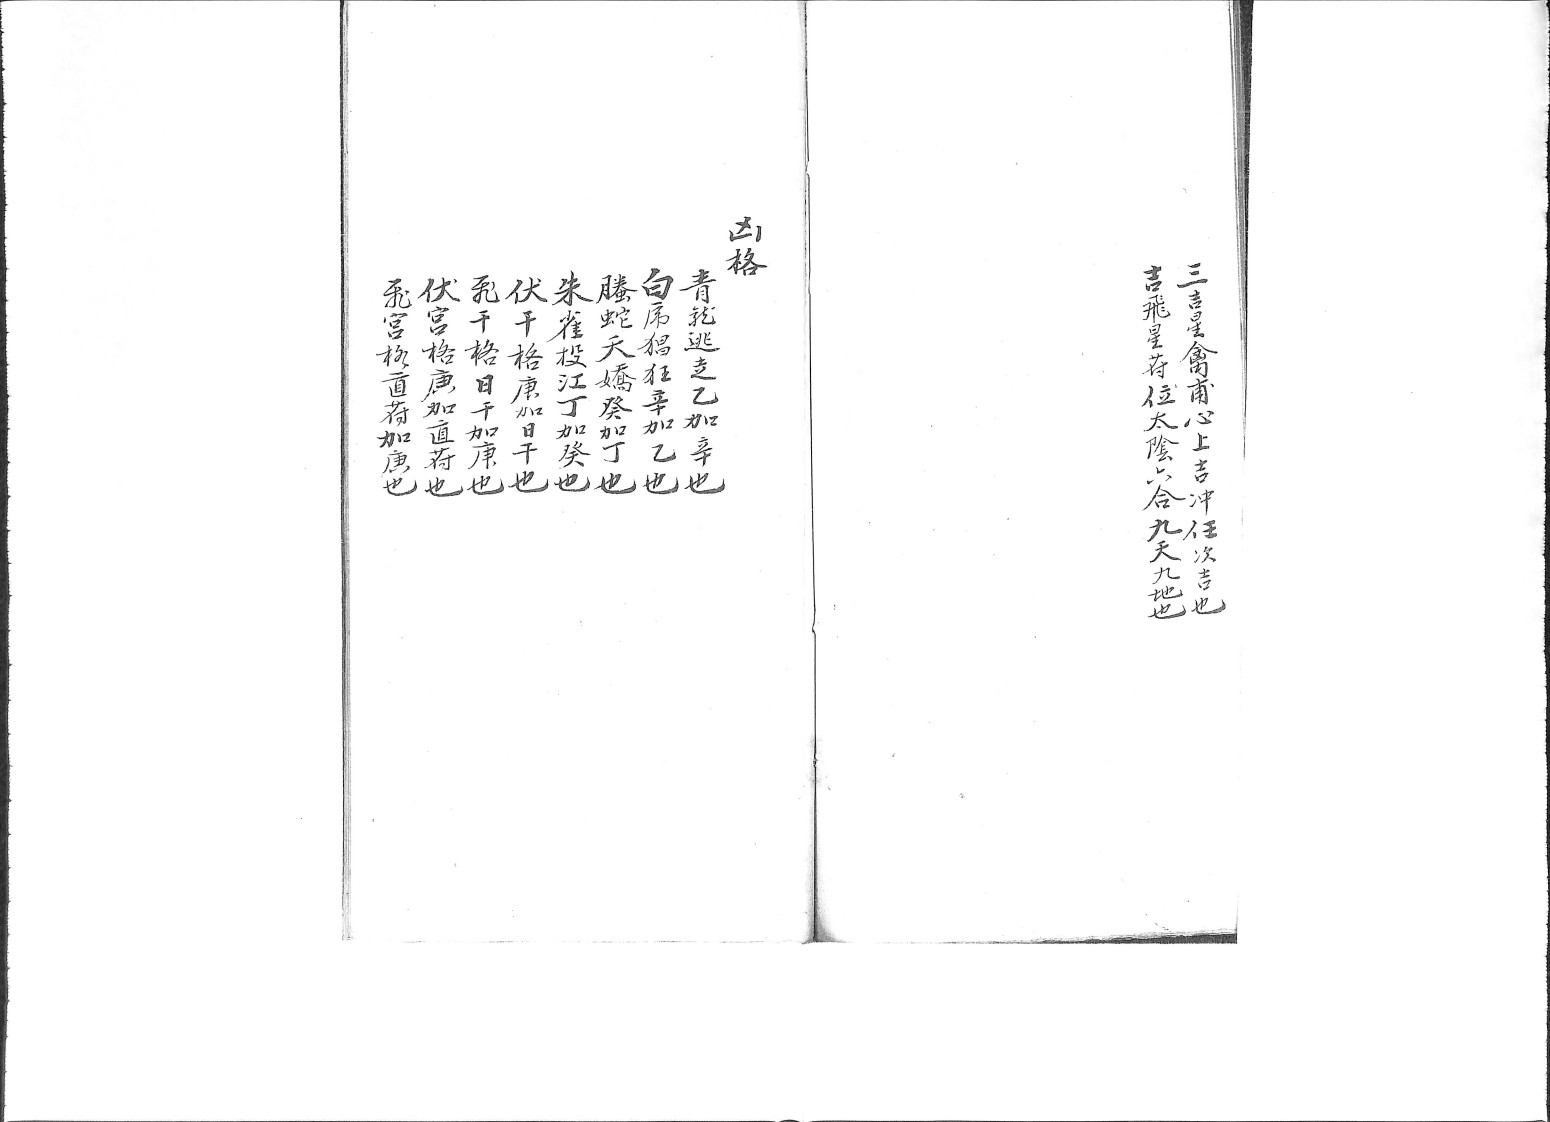 三吉星禽甫心上吉冲任次吉也
吉飛星苻位太陰六合九天九地也
凶格
青龍逃走乙加辛也
白虎猖狂辛加乙也
螣蛇夭嬌癸加丁也
朱雀投江丁加癸也
伏干格庚加日干也
飛干格日干加庚也
伏宫格庚加直苻也
飛宫格直苻加庚也